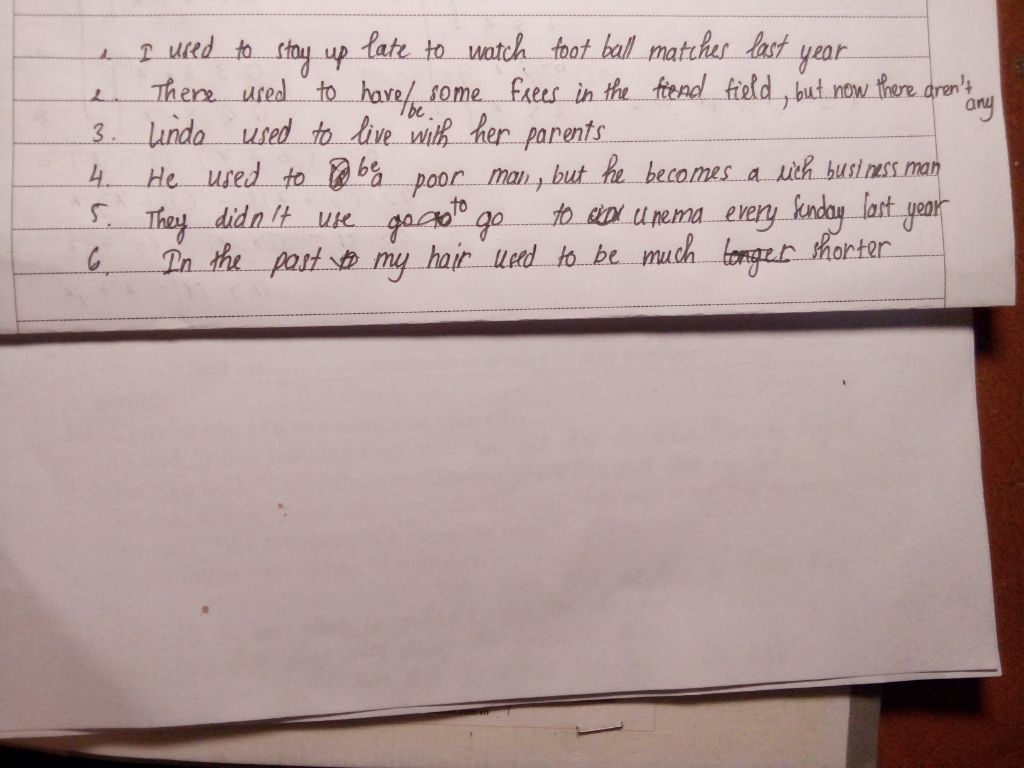 1. I used to stay up late to watch foot ball matches last year
2. There used to have/be some trees in the fiend field, but now there aren't any
3. Linda used to live with her parents
4. He used to be a poor man, but he becomes a rich business man
5. They didn't use go to to go to cinema every Sunday last year
6. In the past to my hair used to be much longer shorter